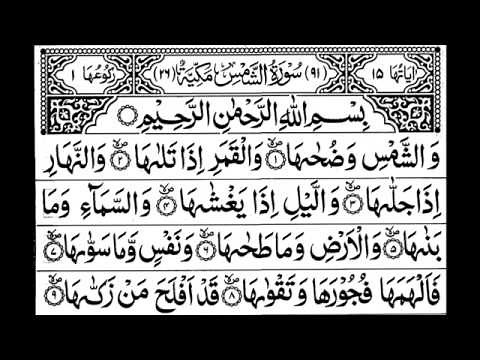 اٰیَاتُهَا ١٥ (٩١) سُوْرَةُ الشَّمْسِ مَکِّیَّةٌ (٢٦) رُکُوْعُهَا ١
بِسْمِ اللّٰهِ الرَّحْمٰنِ الرَّحِیْمِ
وَالشَّمْسِ وَضُحٰىهَا ١ وَالْقَمَرِ اِذَا تَلٰىهَا ٢ وَالنَّهَارِ
اِذَا جَلّٰىهَا ٣ وَالَّیْلِ اِذَا یَغْشٰىهَا ٤ وَالسَّمَآءِ وَمَا
بَنٰىهَا ٥ وَالْاَرْضِ وَمَا طَحٰىهَا ٦ وَنَفْسٍ وَّمَا سَوّٰىهَا ٧
فَاَلْهَمَهَا فُجُوْرَهَا وَتَقْوٰىهَا ٨ قَدْ اَفْلَحَ مَنْ زَکّٰىهَا ٩